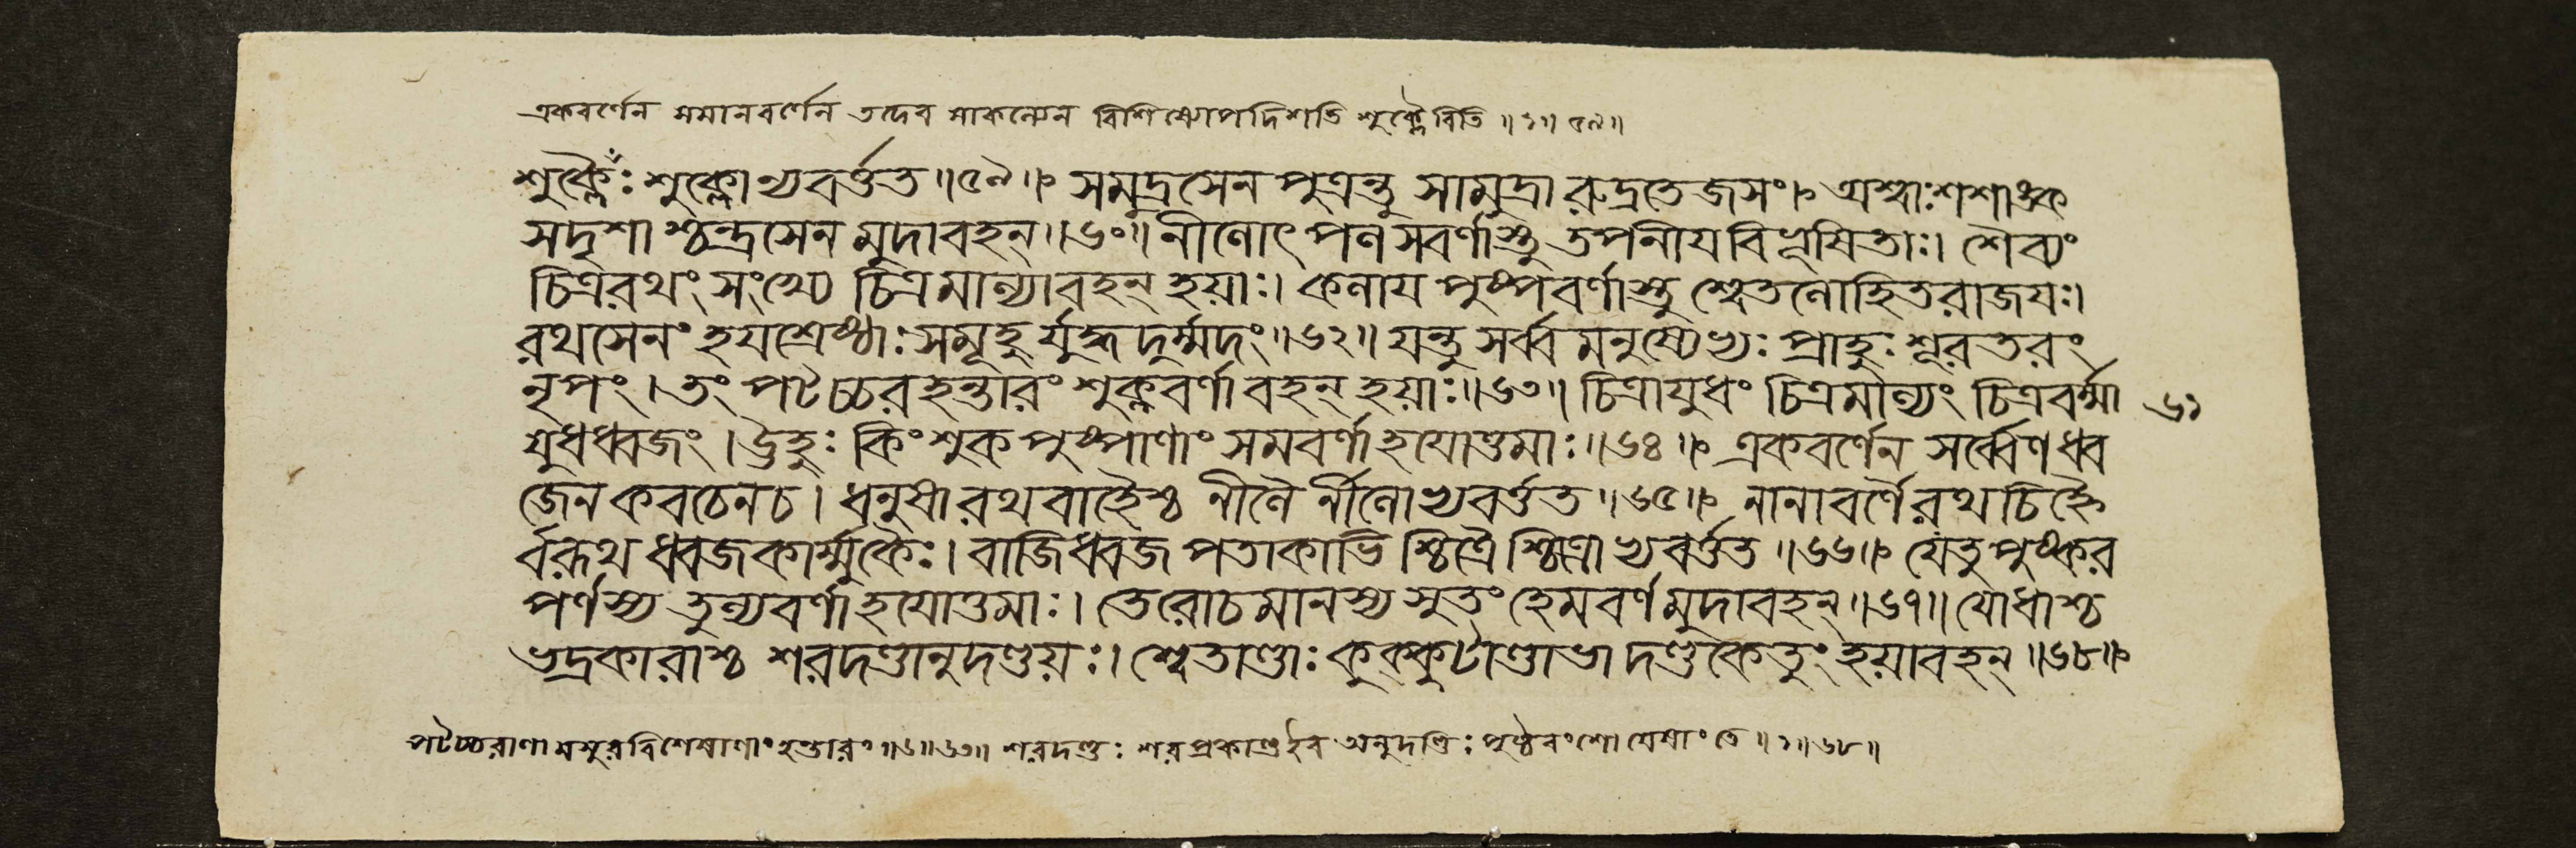 একবর্ণেন সমানবর্ণেন তদেব সাকল্যেন বিশিষ্যোপদিশতি শুক্লৈরিতি ॥১॥ ৫৯॥
শুক্লৈঃ শুক্লোভ্যবর্ত্তত ॥৫৯॥ সমুদ্রসেন পুত্রন্তু সামুদ্রা রুদ্রতেজসং। অশ্বাঃ শশাঙ্ক
সদৃশাশ্চন্দ্রসেন মুদাবহন্ ॥৬০॥ নীলোৎপলসবর্ণাস্তু তপনীয বিভূষিতাঃ। শৈব্যং
চিত্ররথং সংখ্যে চিত্রমাল্যাবহন্ হয়াঃ। কলায পুষ্পবর্ণাস্তু শ্বেতলোহিতরাজযঃ।
রথসেনং হযশ্রেষ্ঠাঃ সমূহুর্যুদ্ধদুর্ম্মদং ॥৬২॥ যন্তু সর্ব্ব মনুষ্যেভ্যঃ প্রাহুঃ শূরতরং
নৃপং। তং পটচ্চরহন্তারং শুক্লবর্ণাবহন্ হয়াঃ ॥৬৩॥ চিত্রাযুধং চিত্রমাল্যং চিত্রবর্ম্মা ৬১
যুধধ্বজং। ঊহুঃ কিংশুক পুষ্পাণাং সমবর্ণা হযোত্তমাঃ ॥৬৪॥ একবর্ণেন সর্ব্বেণ ধ্ব
জেন কবচেন চ। ধনুষা রথবাহৈশ্চ নীলৈর্নীলোভ্যবর্ত্তত ॥৬৫॥ নানাবর্ণৈ রথচিহ্নৈ
র্বরূথ ধ্বজকার্ম্মুকৈঃ। বাজিধ্বজ পতাকাভিশ্চিত্রৈশ্চিত্রোভ্যবর্ত্তত ॥৬৬॥ যেতু পুষ্কর
পর্ণস্য তুল্যবর্ণা হযোত্তমাঃ। তে রোচমানস্য সুতং হেমবর্ণমুদাবহন্ ॥৬৭॥ যোধাশ্চ
ভদ্রকারাশ্চ শরদণ্ডানুদণ্ডয়ঃ। শ্বেতাণ্ডাঃ কুক্কুটাণ্ডাভা দণ্ডকেতুং হয়াবহন্ ॥৬৮॥
পটচ্চরাণামসুরবিশেষাণাং হন্তারং ॥৬॥৬৩॥ শরদণ্ডঃ শরপ্রকাণ্ডইব অনুদণ্ডিঃ পৃষ্ঠবংশো যেষাং তে ॥১॥৬৮॥